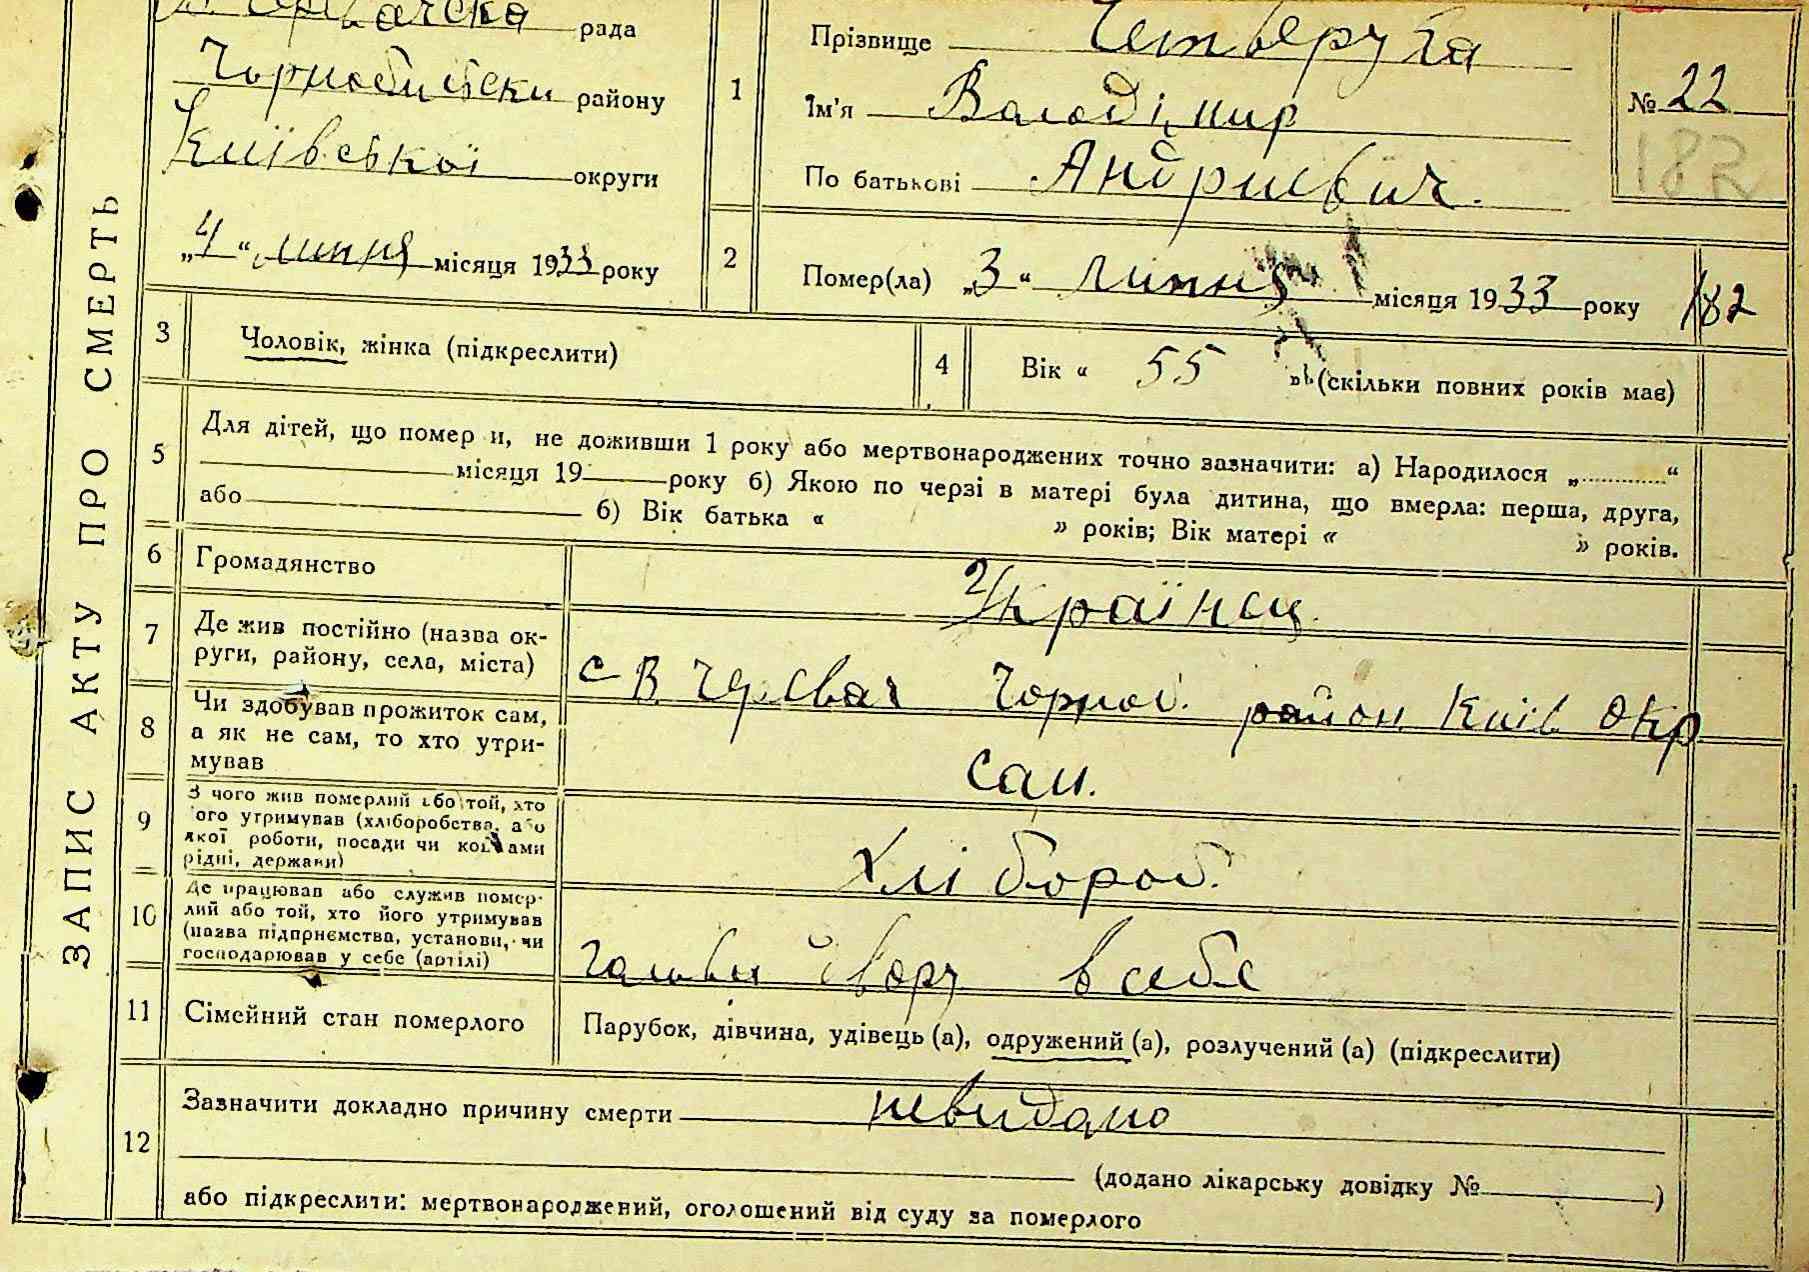 рада
Чорнобильски району
Київської округи
„4“ липня місяця 1933 року
ЗАПИС АКТУ ПРО СМЕРТЬ
1
Прізвище Четверуха
Ім'я Володімир
По батькові Андриевич.
№ 22
182
2
Помер(ла) „3“ липня місяця 1933 року
182
3
Чоловік, жінка (підкреслити)
4
Вік « 55 » (скільки повних років має)
5
Для дітей, що помер и, не доживши 1 року або мертвонароджених точно зазначити: а) Народилося „............“
місяця 19 року б) Якою по черзі в матері була дитина, що вмерла: перша, друга,
або б) Вік батька « » років; Вік матері « » років.
6
Громадянство
Українец.
7
Де жив постійно (назва ок-
руги, району, села, міста)
с В. Черевач Чорноб. район Київ Окр
8
Чи здобував прожиток сам,
а як не сам, то хто утри-
мував
сам.
9
З чого жив померлий або той, хто
його утримував (хліборобства, або
якої роботи, посади чи коштами
рідні, держави)
Хлібороб.
10
Де працював або служив помер-
лий або той, хто його утримував
(назва підприємства, установи, чи
господарював у себе (артілі)
в себе
11
Сімейний стан померлого
Парубок, дівчина, удівець (а), одружений (а), розлучений (а) (підкреслити)
12
Зазначити докладно причину смерти невидано
(додано лікарську довідку № )
або підкреслити: мертвонароджений, оголошений від суду за померлого